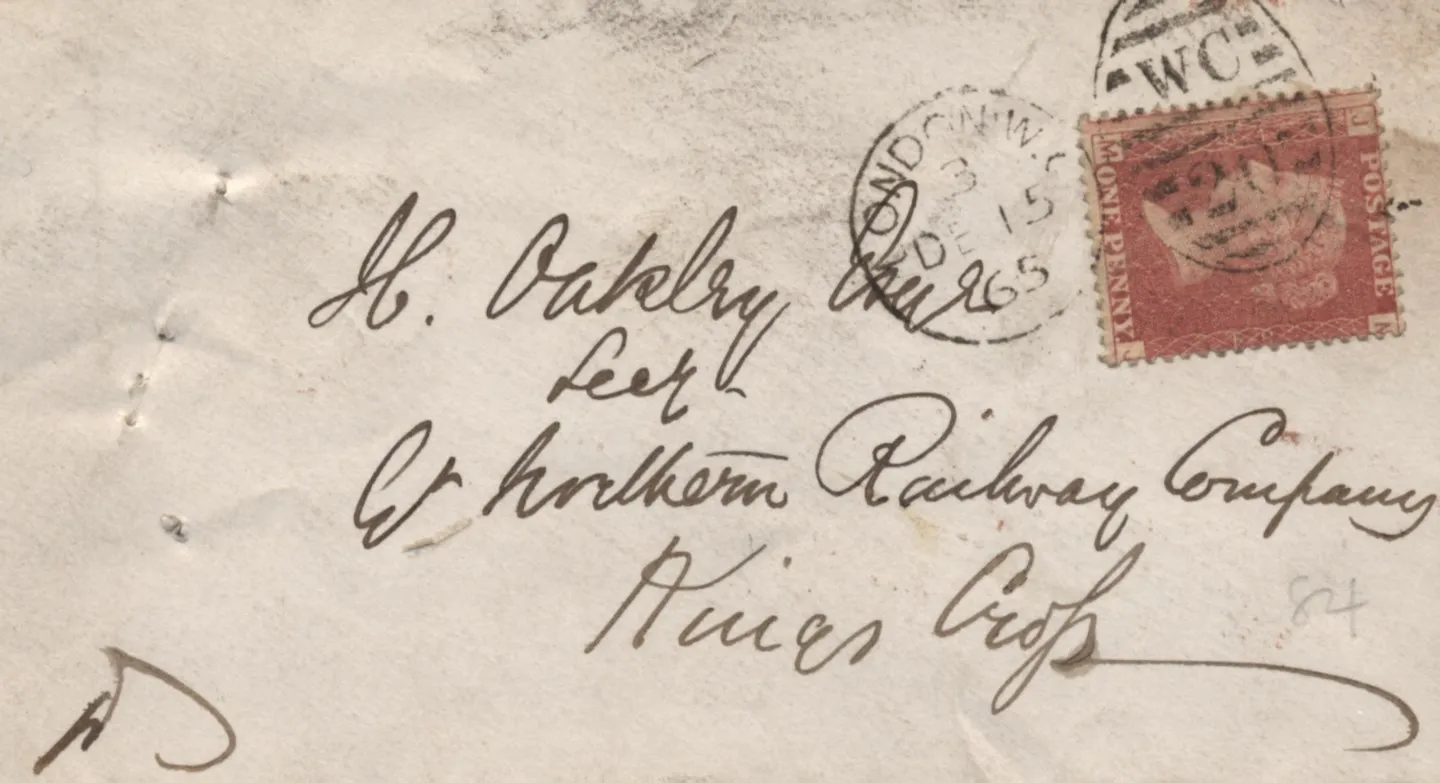 WC
20
LONDON·W.C
3
DE 15
65
J
M
ONE PENNY
POSTAGE
M
J
H. Oakley Esqre
Secy-
Gt Northern Railway Company
Kings Cross
84